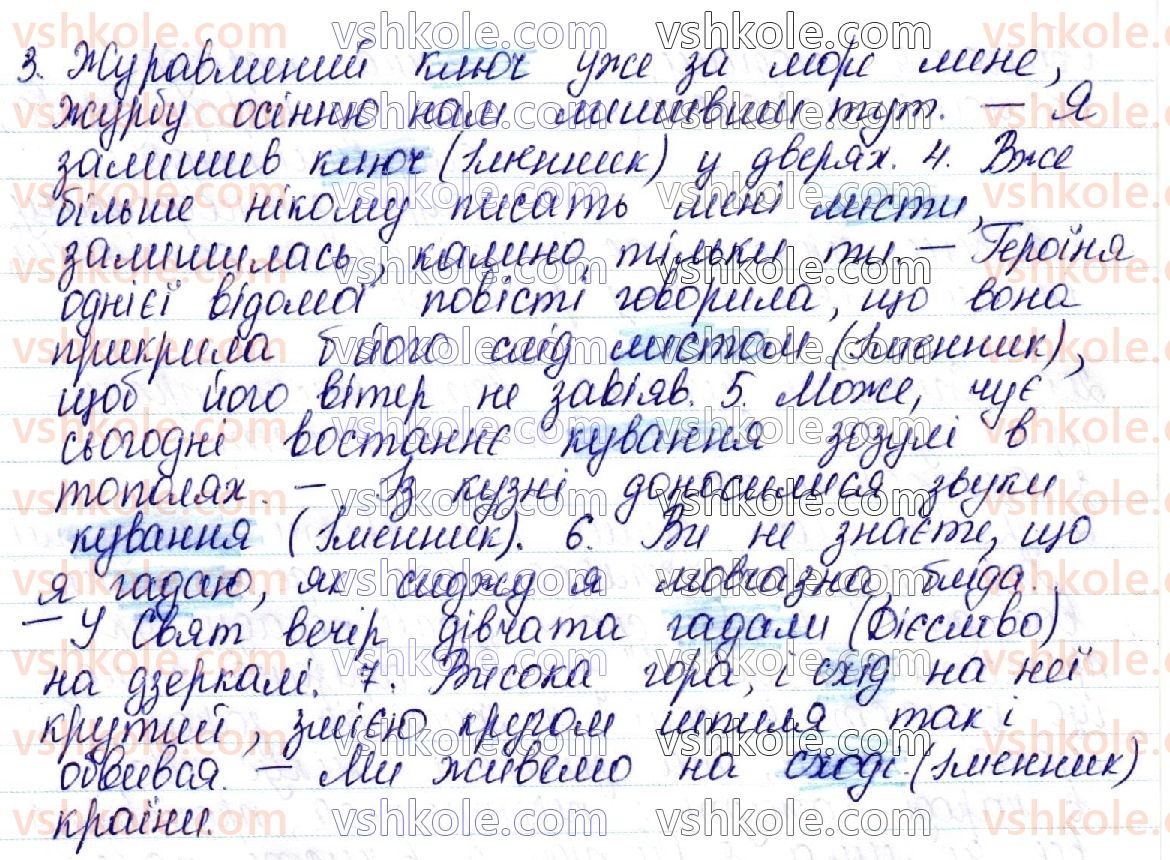 3. Журавлиний ключ уже за море лине,
журбу осінню нам лишивши тут. — Я
залишив ключ (Іменник) у дверях. 4. Вже
більше нікому писать мені листи,
залишилась, калино, тільки ти. — Героїня
однієї відомої повісті говорила, що вона
прикрила б його слід листом (Іменник),
щоб його вітер не завіяв. 5. Може, чує
сьогодні востаннє кування зозулі в
тополях. — Із кузні доносилися звуки
кування (Іменник). 6. Ви не знаєте, що
я гадаю, як сиджу я мовчазна, бліда.
— У Свят вечір дівчата гадали (Дієслово)
на дзеркалі. 7. Висока гора, і схід на неї
крутий, змією кругом шпиля так і
обвивая. — Ми живемо на сході (Іменник)
країни.
vshkole.com